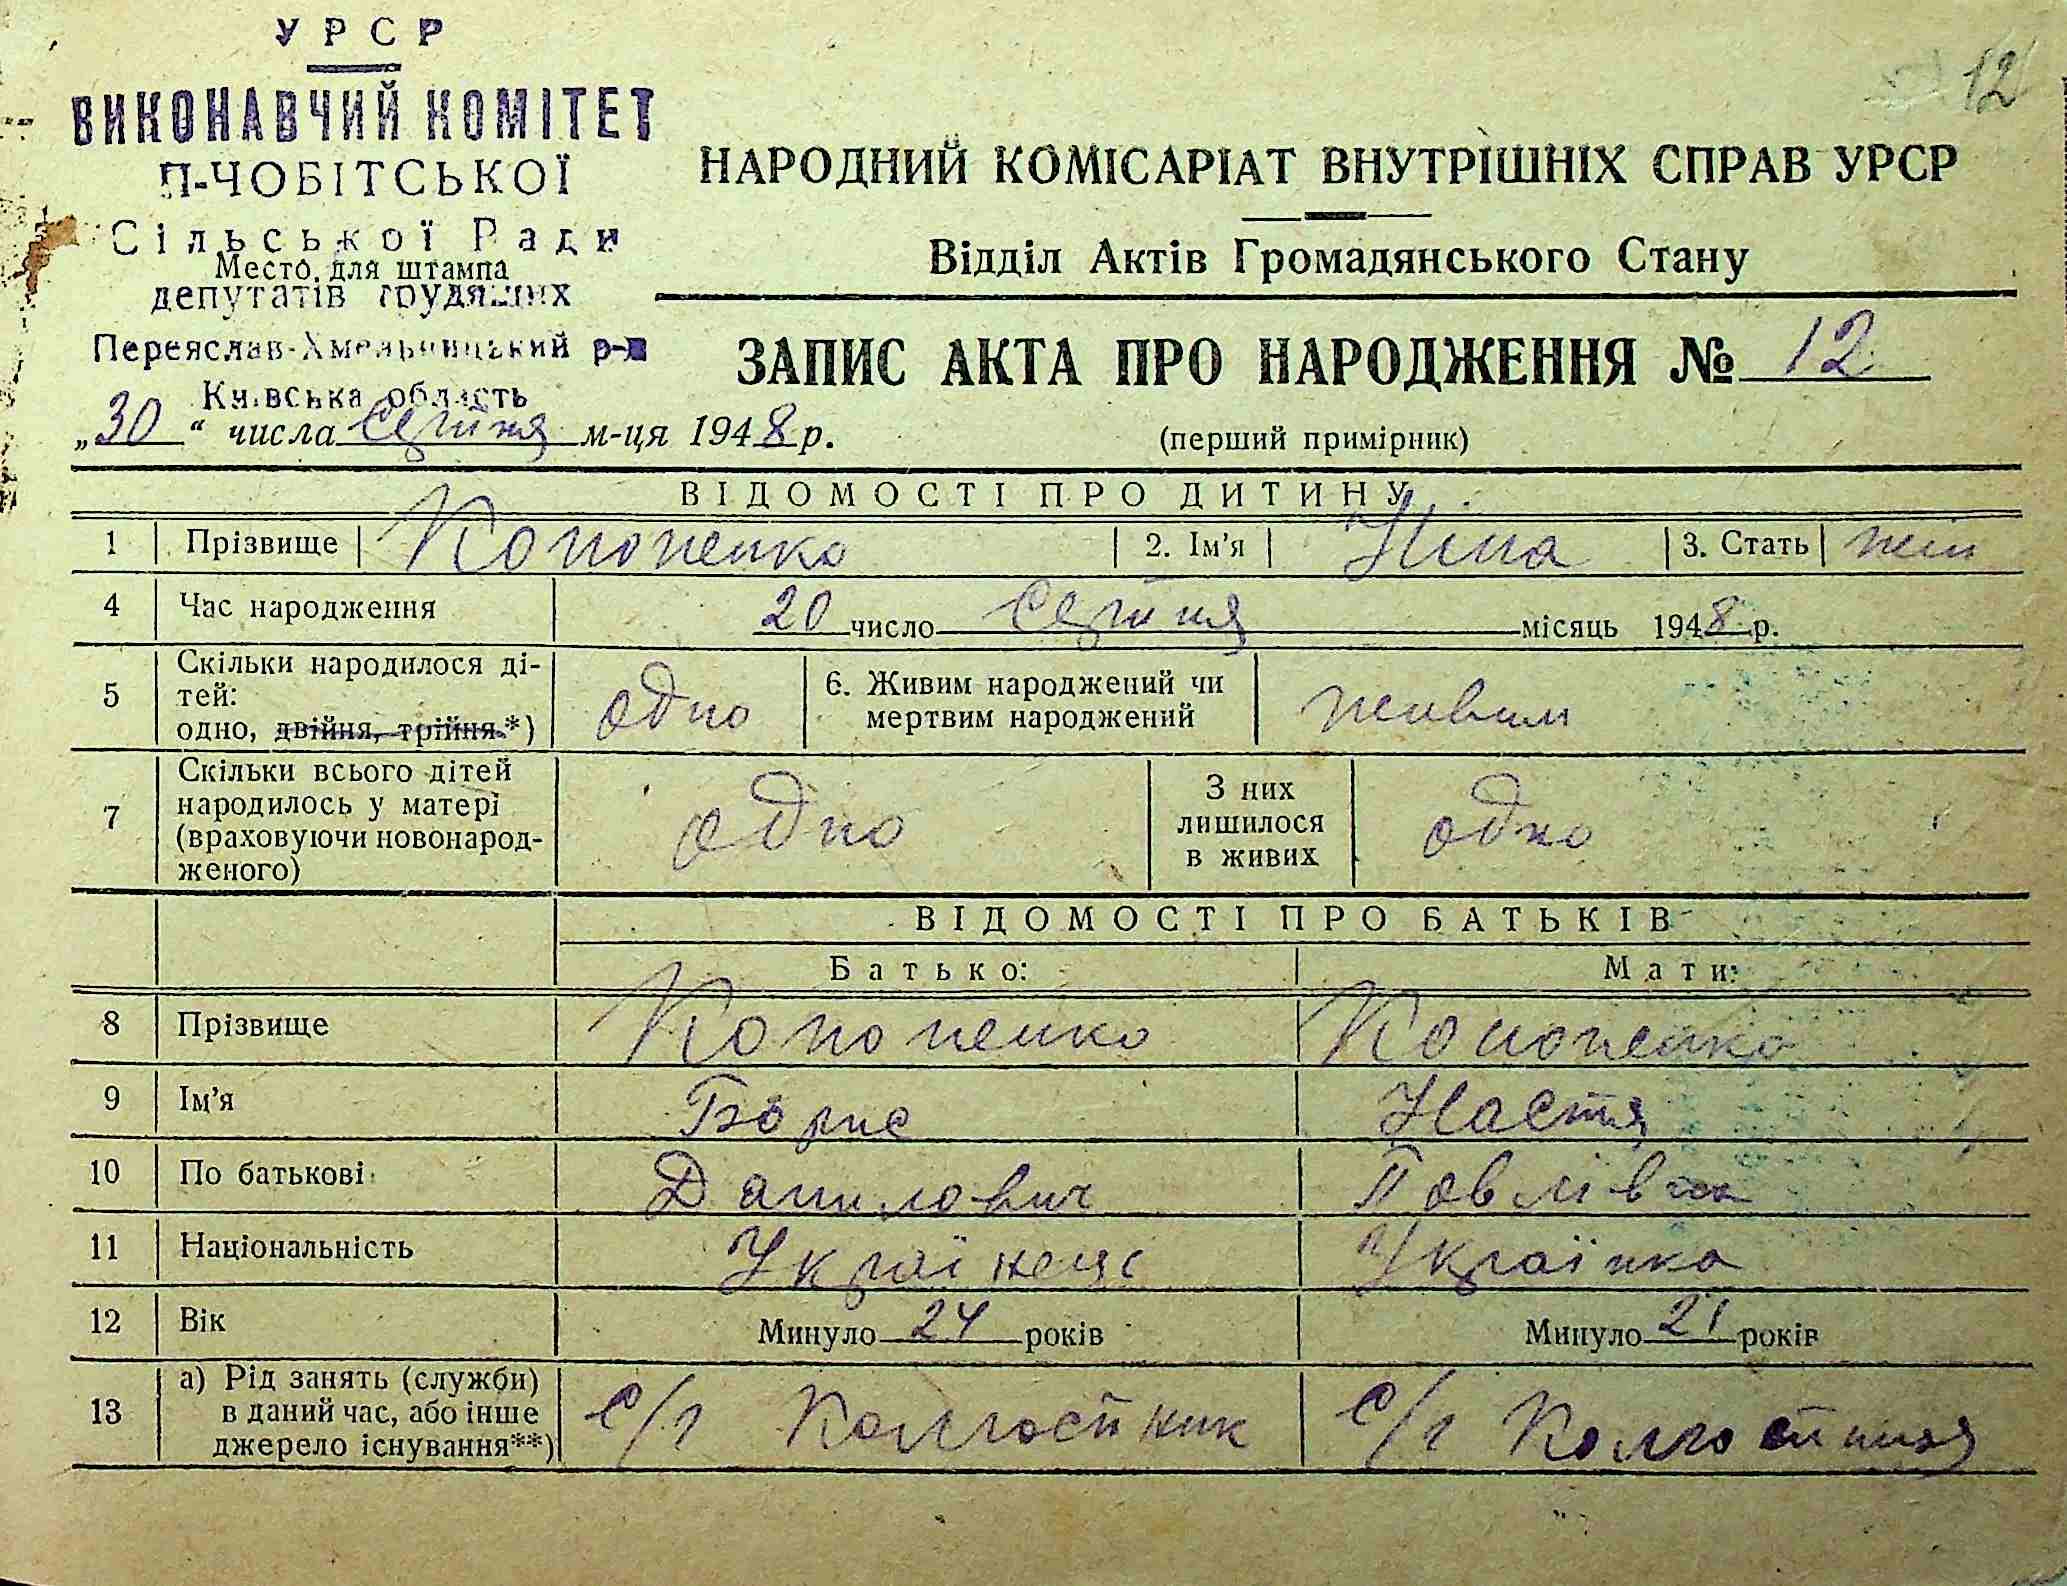 УРСР
ВИКОНАВЧИЙ КОМІТЕТ
П-ЧОБІТСЬКОЇ
Сільської Ради
Место для штампа
депутатів трудящих
Переяслав-Хмельницький р-н
Київська область
12
НАРОДНИЙ КОМІСАРІАТ ВНУТРІШНІХ СПРАВ УРСР
Відділ Актів Громадянського Стану
ЗАПИС АКТА ПРО НАРОДЖЕННЯ № 12
„30“ числа серпня м-ця 1948 р.
(перший примірник)
ВІДОМОСТІ ПРО ДИТИНУ
1 Прізвище Кононенко 2. Ім'я Ніна 3. Стать жін
4 Час народження 20 число серпня місяць 1948 р.
5 Скільки народилося ді-
тей:
одно, двійня, трійня.*) одно 6. Живим народжений чи
мертвим народжений живим
7 Скільки всього дітей
народилось у матері
(враховуючи новонарод-
женого) одно З них
лишилося
в живих одно
ВІДОМОСТІ ПРО БАТЬКІВ
Батько: Мати:
8 Прізвище Кононенко Кононенко
9 Ім'я Борис Настя
10 По батькові Данилович Павлівна
11 Національність Українець Українка
12 Вік Минуло 24 років Минуло 21 років
13 а) Рід занять (служби)
в даний час, або інше
джерело існування**) с/г Колгоспник с/г Колгоспниця